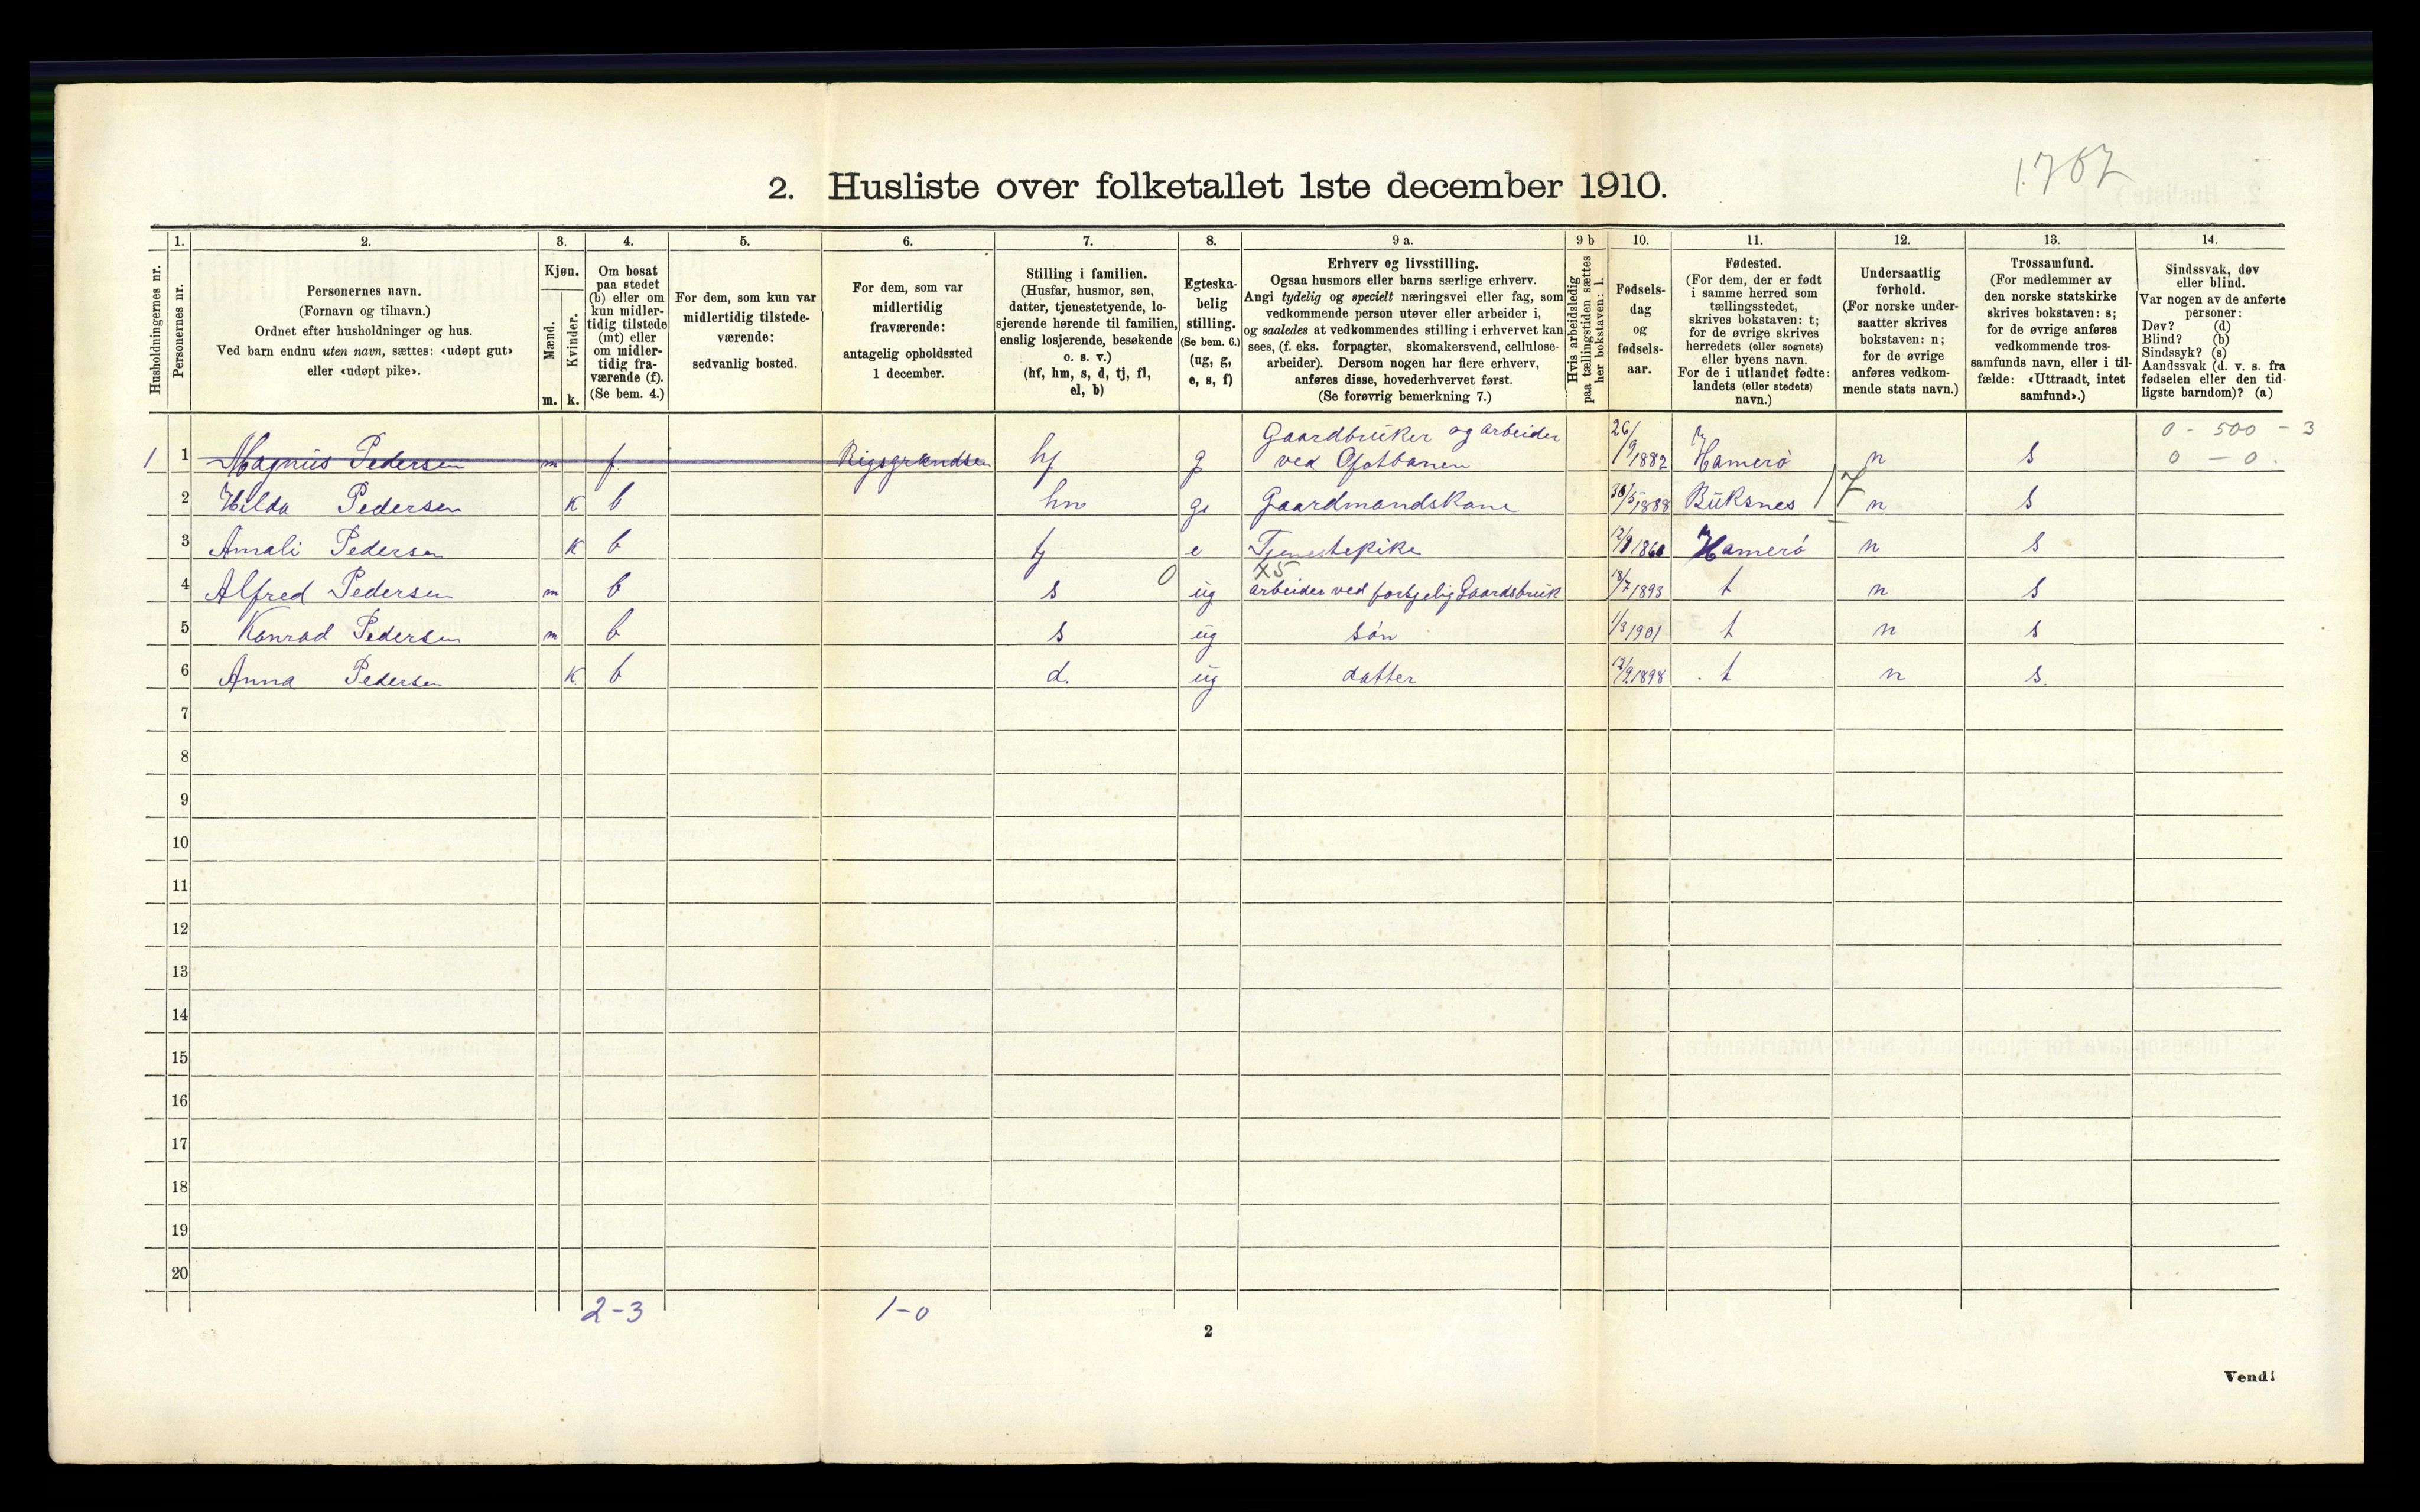 1.767
2. Husliste over folketallet 1ste december 1910.
Husholdningernes nr.
1. Personernes nr.
2. Personernes navn.
(Fornavn og tilnavn.)
Ordnet efter husholdninger og hus.
Ved barn endnu uten navn, sættes: «udøpt gut»
eller «udøpt pike».
3. Kjøn.
Mænd. m.
Kvinder. k.
4. Om bosat
paa stedet
(b) eller om
kun midler-
tidig tilstede
(mt) eller
om midler-
tidig fra-
værende (f).
(Se bem. 4.)
5. For dem, som kun var
midlertidig tilstede-
værende:
sedvanlig bosted.
6. For dem, som var
midlertidig
fraværende:
antagelig opholdssted
1 december.
7. Stilling i familien.
(Husfar, husmor, søn,
datter, tjenestetyende, lo-
sjerende hørende til familien,
enslig losjerende, besøkende
o. s. v.)
(hf, hm, s, d, tj, fl,
el, b)
8. Egteska-
belig
stilling.
(Se bem. 6.)
(ug, g,
e, s, f)
9 a. Erhverv og livsstilling.
Ogsaa husmors eller barns særlige erhverv.
Angi tydelig og specielt næringsvei eller fag, som
vedkommende person utøver eller arbeider i,
og saaledes at vedkommendes stilling i erhvervet kan
sees, (f. eks. forpagter, skomakersvend, cellulose-
arbeider). Dersom nogen har flere erhverv,
anføres disse, hovederhvervet først.
(Se forøvrig bemerkning 7.)
9 b Hvis arbeidsledig
paa tællingstiden sættes
her bokstaven: l.
10. Fødsels-
dag
og
fødsels-
aar.
11. Fødested.
(For dem, der er født
i samme herred som
tællingsstedet,
skrives bokstaven: t;
for de øvrige skrives
herredets (eller sognets)
eller byens navn.
For de i utlandet fødte:
landets (eller stedets)
navn.)
12. Undersaatlig
forhold.
(For norske under-
saatter skrives
bokstaven: n;
for de øvrige
anføres vedkom-
mende stats navn.)
13. Trossamfund.
(For medlemmer av
den norske statskirke
skrives bokstaven: s;
for de øvrige anføres
vedkommende tros-
samfunds navn, eller i til-
fælde: «Uttraadt, intet
samfund».)
14. Sindssvak, døv
eller blind.
Var nogen av de anførte
personer:
Døv? (d)
Blind? (b)
Sindssyk? (s)
Aandssvak (d. v. s. fra
fødselen eller den tid-
ligste barndom)? (a)
Gaardbruker og arbeider 26/ 0 - 500 - 3
1 1 Magnus Pedersen m f Rigsgrændsen hf g ved Ofotbanen 9 1882 Hamerø n s 0 - 0.
2 Hilda Pedersen K b hm g Gaardmandskone 30/5 1888 Buksnes 17 n s
3 Amali Pedersen K b tj e Tjenestepike 1860 Hamerø n s
X5
4 Alfred Pedersen m b s 0 ug arbeider ved forskjelig Gaardsbruk 18/7 1893 t n s
5 Konrad Pedersen m b s ug søn 1/3 1901 t n s
6 Anna Pedersen K. b d. ug datter 12/9 1898 t n s.
7
8
9
10
11
12
13
14
15
16
17
18
19
20
2-3 1-0
2
Vend!